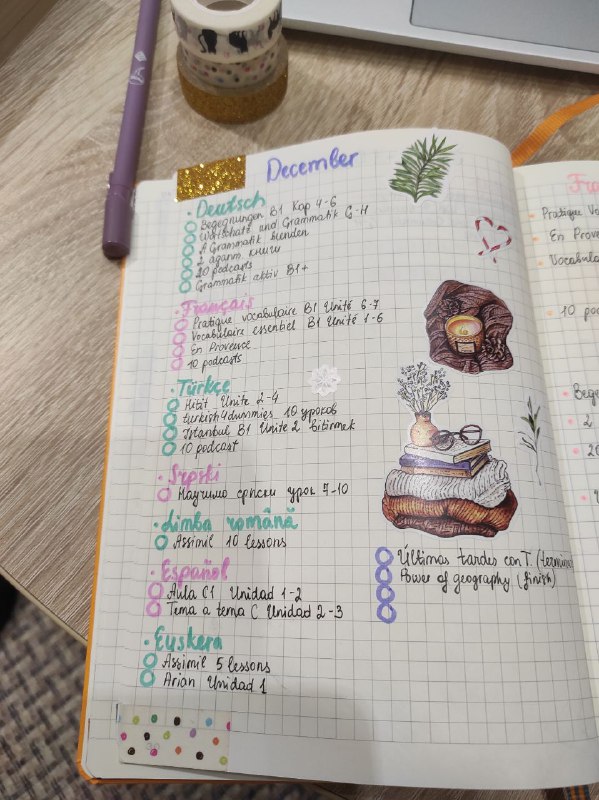 December
· Deutsch
Begegnungen B1 Kap 4-6
Wortschatz und Grammatik G-H
A Grammatik
2
20 podcasts
Grammatik aktiv B1+
· Français
Pratique vocabulaire B1 Unité 6-7
Vocabulaire essentiel B1 Unité 1-6
En Provence
10 podcasts
· Türkçe
Hitit Unite 2-4
turkish4dummies 10 уроков
Istanbul B1 Unite 2 bitirmek
10 podcast
· Srpski
Научимо српски урок 7-10
· Limba română
Assimil 10 lessons
· Español
Aula C1 Unidad 1-2
Tema a tema C Unidad 2-3
· Euskera
Assimil 5 lessons
Arian Unidad 1
Últimas tardes con T.
Power of geography (finish)
Pratique Vo
En Prove
Vocabula
10 po
Bege
2